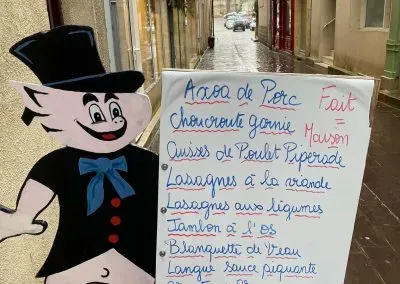 Axoa de Porc
Choucroute garnie
Cuisses de Poulet Piperade
Lasagnes à la viande
Lasagnes aux légumes
Jambon à l'os
Blanquette de Veau
Langue sauce piquante
Fait
=
Maison